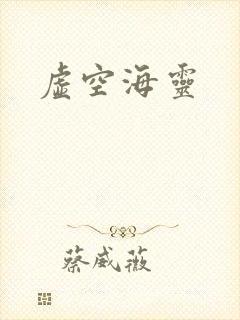 虛空海靈
蔡威薇